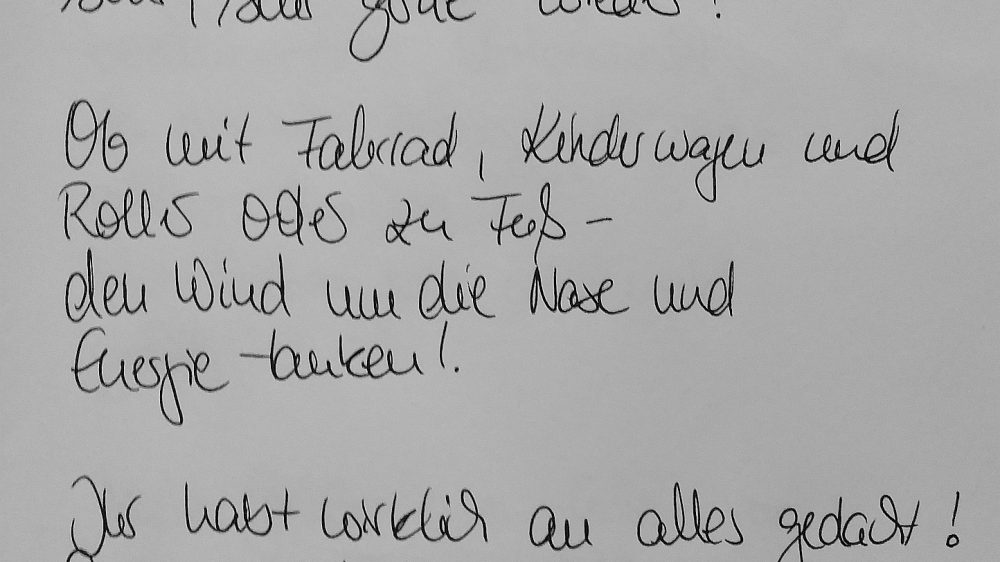 gerne wieder!
Ob mit Fahrrad, Kinderwagen und
Roller oder zu Fuß –
den Wind um die Nase und
Energie tanken!
Ihr habt wirklich an alles gedacht!